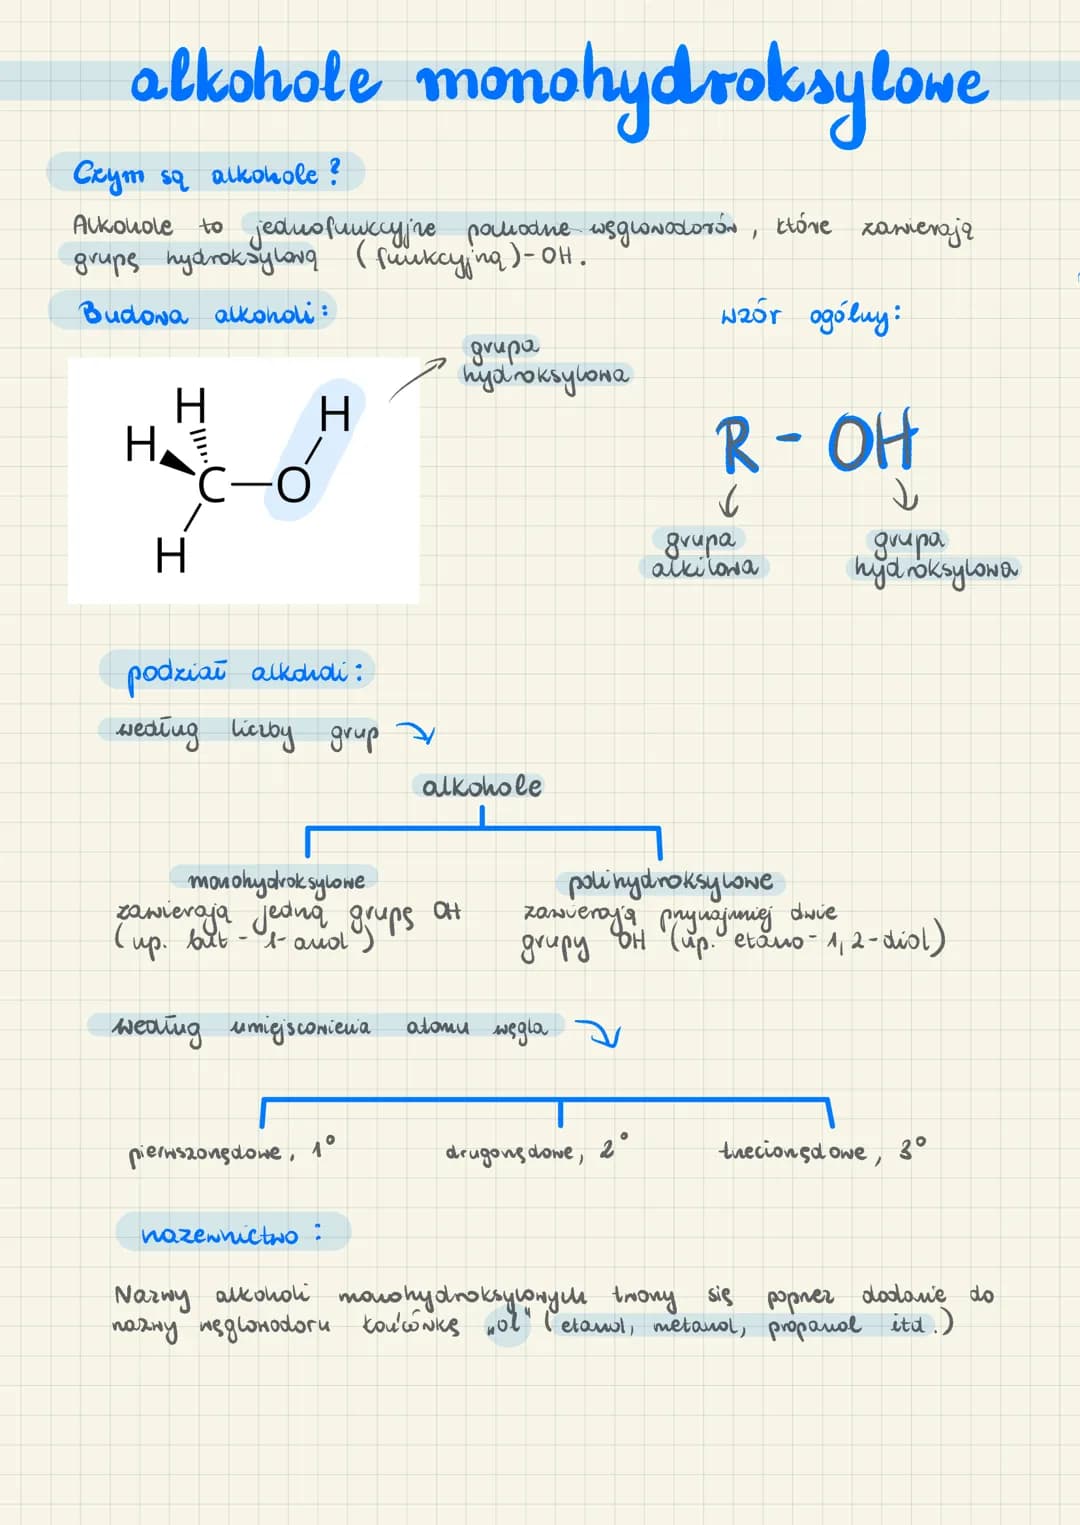 alkohole monohydroksylowe
Czym są alkohole?
Alkohole to jednofunkcyjne pochodne węglowodorów, które zawierają
grupę hydroksylową (funkcyjną)-OH.
Budowa alkoholi:
wzór ogólny:
grupa
hydroksylowa
H
H
H
C-O
H
R-OH
grupa
alkilowa
grupa
hydroksylowa
podział alkoholi:
według liczby grup
alkohole
monohydroksylowe
zawierają jedną grupę OH
(np. but-1-anol)
polihydroksylowe
zawierają przynajmniej dwie
grupy OH (np. etano-1,2-diol)
według umiejscowienia atomu węgla
pierwszorzędowe, 1°
drugorzędowe, 2°
trzeciorzędowe, 3°
nazewnictwo:
Nazwy alkoholi monohydroksylowych tworzy się poprzez dodanie do
nazwy węglowodoru końcówkę „ol" (etanol, metanol, propanol itd.)